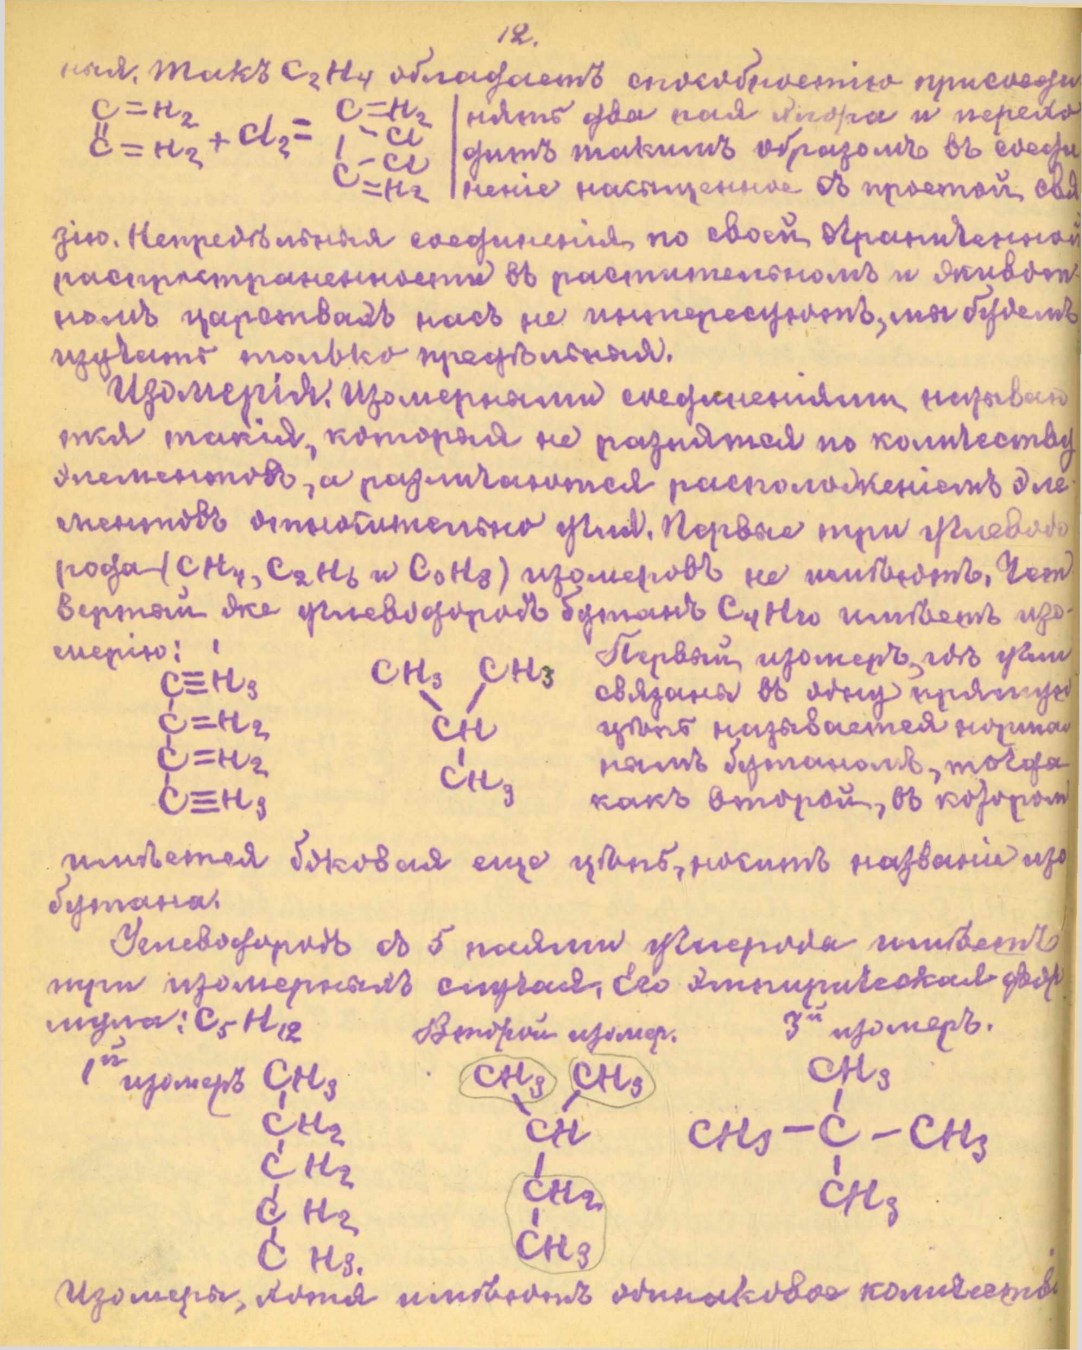 12.
ныя. Такъ C₂H₄ обладаетъ способностію присоеди
C=H₂
C=H₂ + Cl₂ =
C=H₂
- Cl
- Cl
C=H₂
нять два пая хлора и перехо
дитъ такимъ образомъ въ соеди
неніе насыщенное съ простой свя
зію. Непредѣльныя соединенія, по своей ограниченной
распространенности въ растительномъ и живот
номъ царствахъ насъ не интересуютъ, мы будемъ
изучать только предѣльныя.
Изомерія. Изомерными соединеніями называю
тся такія, которыя не разнятся по количеству
элементовъ, а различаются расположеніемъ эле
ментовъ относительно угля. Первые три углеводо
рода (CH₄, C₂H₆ и C₃H₈) изомеровъ не имѣютъ. Чет
вертый же углеводородъ бутанъ C₄H₁₀ имѣетъ изо-
мерію:
C≡H₃
C=H₂
C=H₂
C≡H₃
CH₃ CH₃
CH
CH₃
Первый изомеръ, гдѣ угли
связаны въ одну прямую
цѣпь называется нормаль
нымъ бутаномъ, тогда
какъ второй, въ котором
имѣется боковая еще цѣпь, носитъ названіе изо
бутана.
Углеводородъ съ 5 паями углерода имѣетъ
три изомерныхъ случая. Его эмпирическая фор
мула: C₅H₁₂
1й изомеръ
CH₃
CH₂
CH₂
CH₂
CH₃.
Второй изомер.
CH₃ CH₃
CH
CH₂
CH₃
3й изомеръ.
CH₃
CH₃ — C — CH₃
CH₃
Изомеры, хотя имѣютъ одинаковое количество